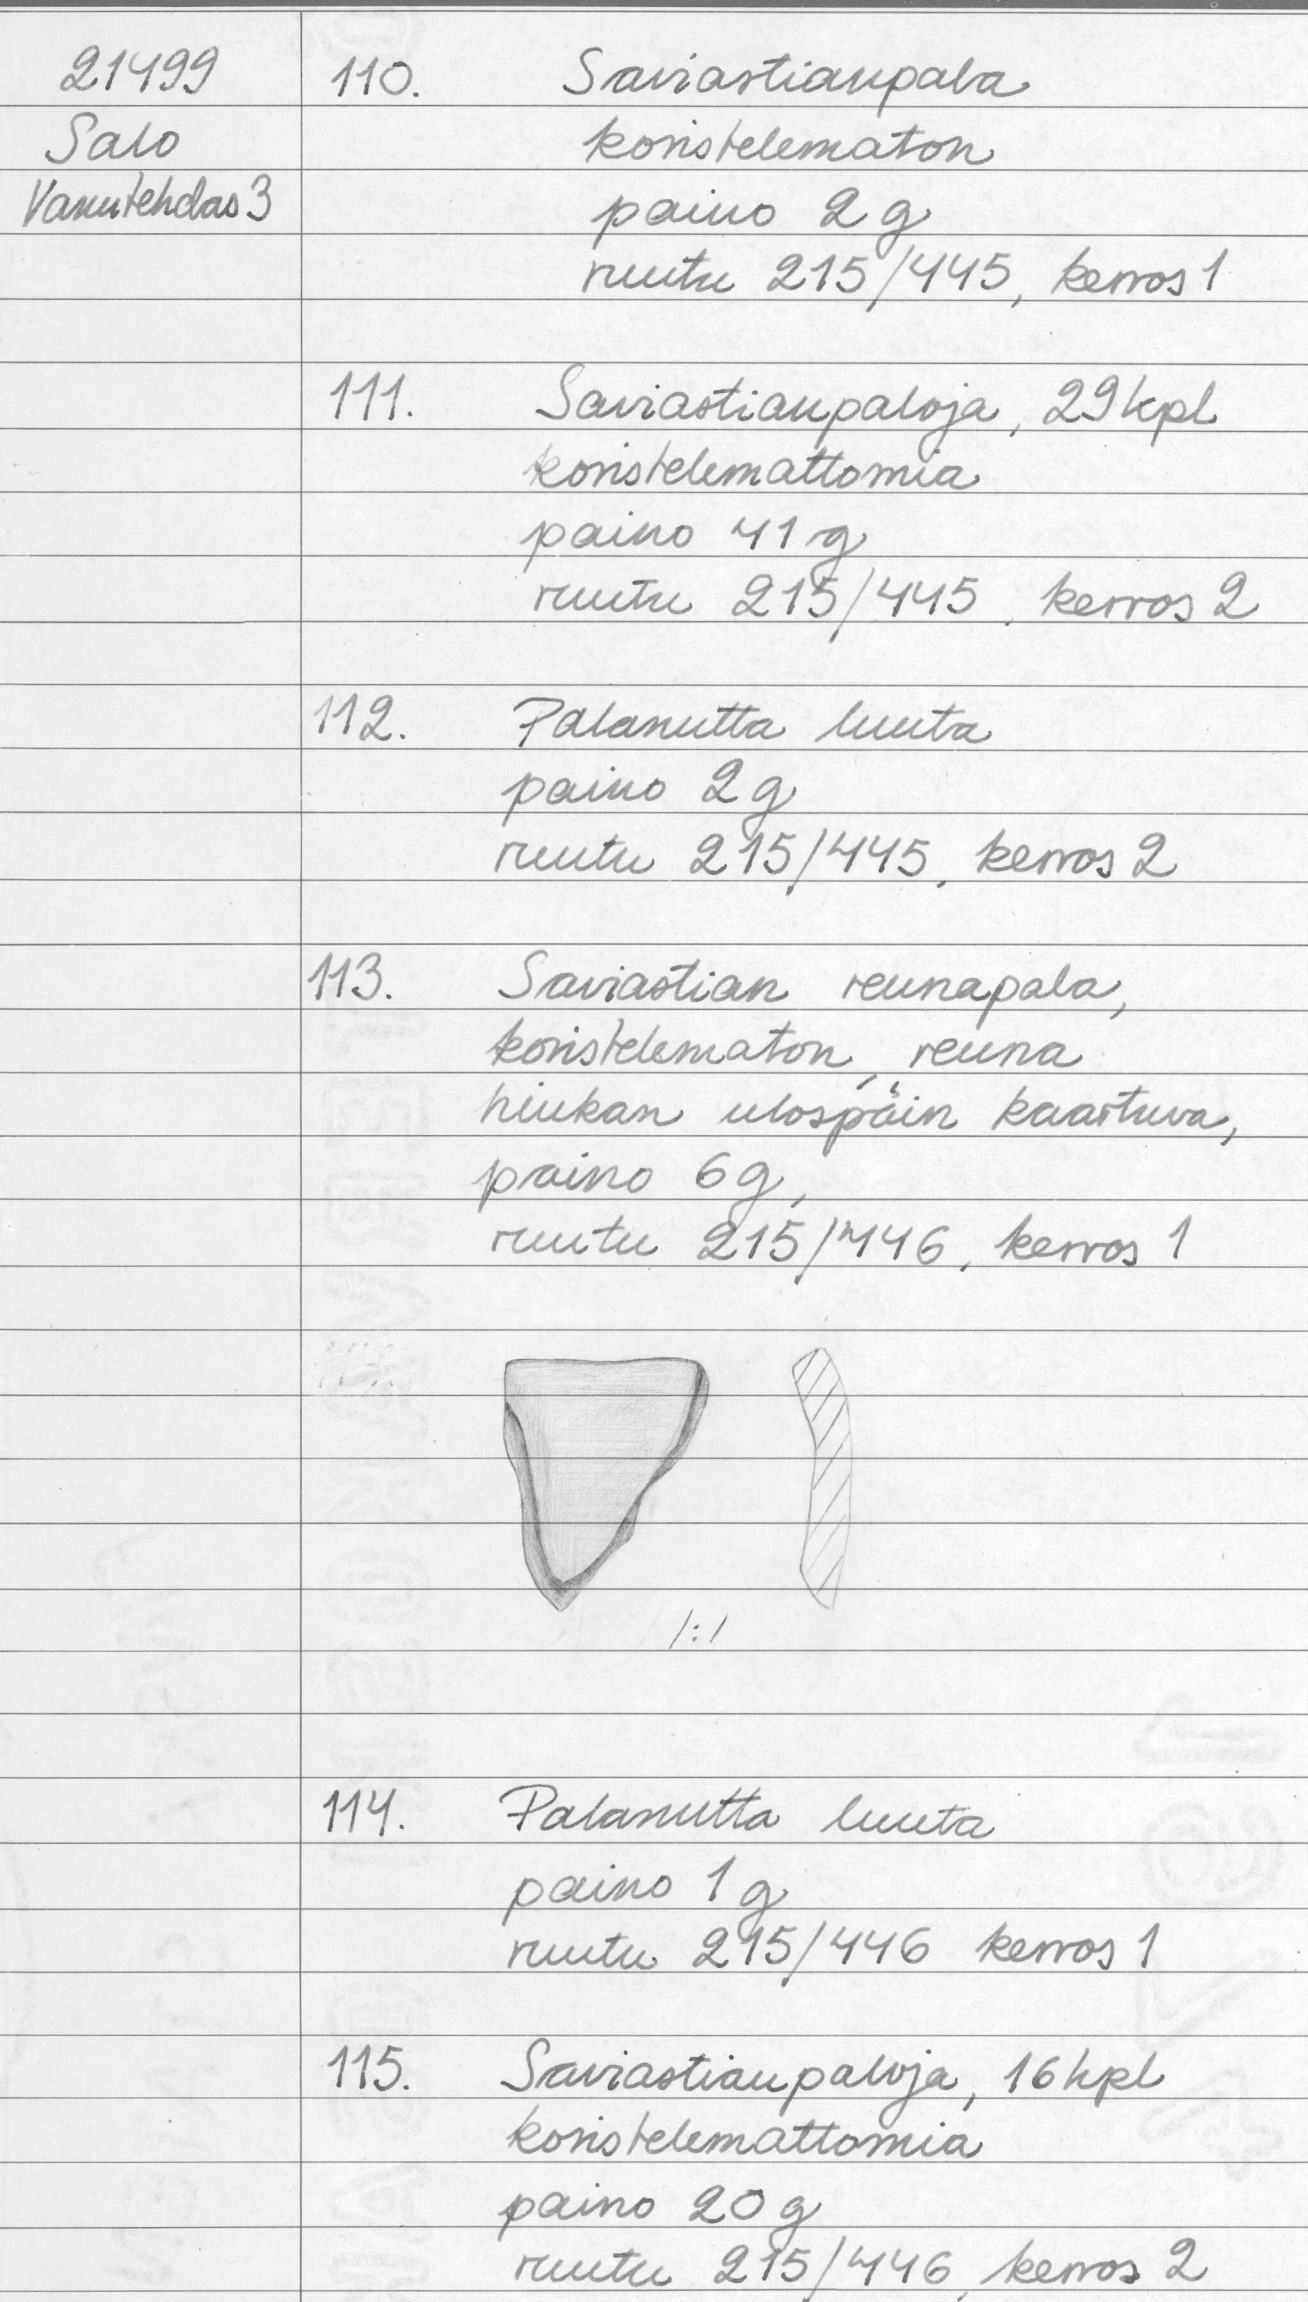 21499
Salo
Vanutehdas 3
110. Saviastianpala
koristelematon
paino 2 g
ruutu 215/445, kerros 1
111. Saviastianpaloja, 29 kpl
koristelemattomia
paino 41 g
ruutu 215/445, kerros 2
112. Palanutta luuta
paino 2 g
ruutu 215/445, kerros 2
113. Saviastian reunapala,
koristelematon, reuna
hiukan ulospäin kaartuva,
paino 6 g,
ruutu 215/446, kerros 1
1:1
114. Palanutta luuta
paino 1 g
ruutu 215/446 kerros 1
115. Saviastianpaloja, 16 kpl
koristelemattomia
paino 20 g
ruutu 215/446, kerros 2